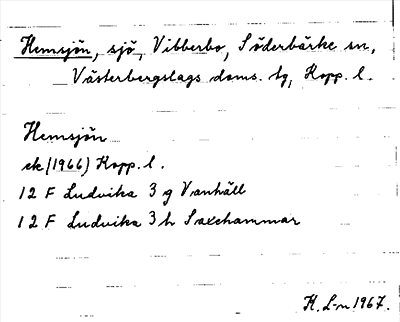 Hemsjön, sjö, Vibberbo, Söderbärke sn,
Västerbergslags doms. tg, Kopp. l.
Hemsjön
ek (1966) Kopp. l.
12 F Ludvika 3 g Vanhäll
12 F Ludvika 3 h Saxehammar
H. L-n 1967.